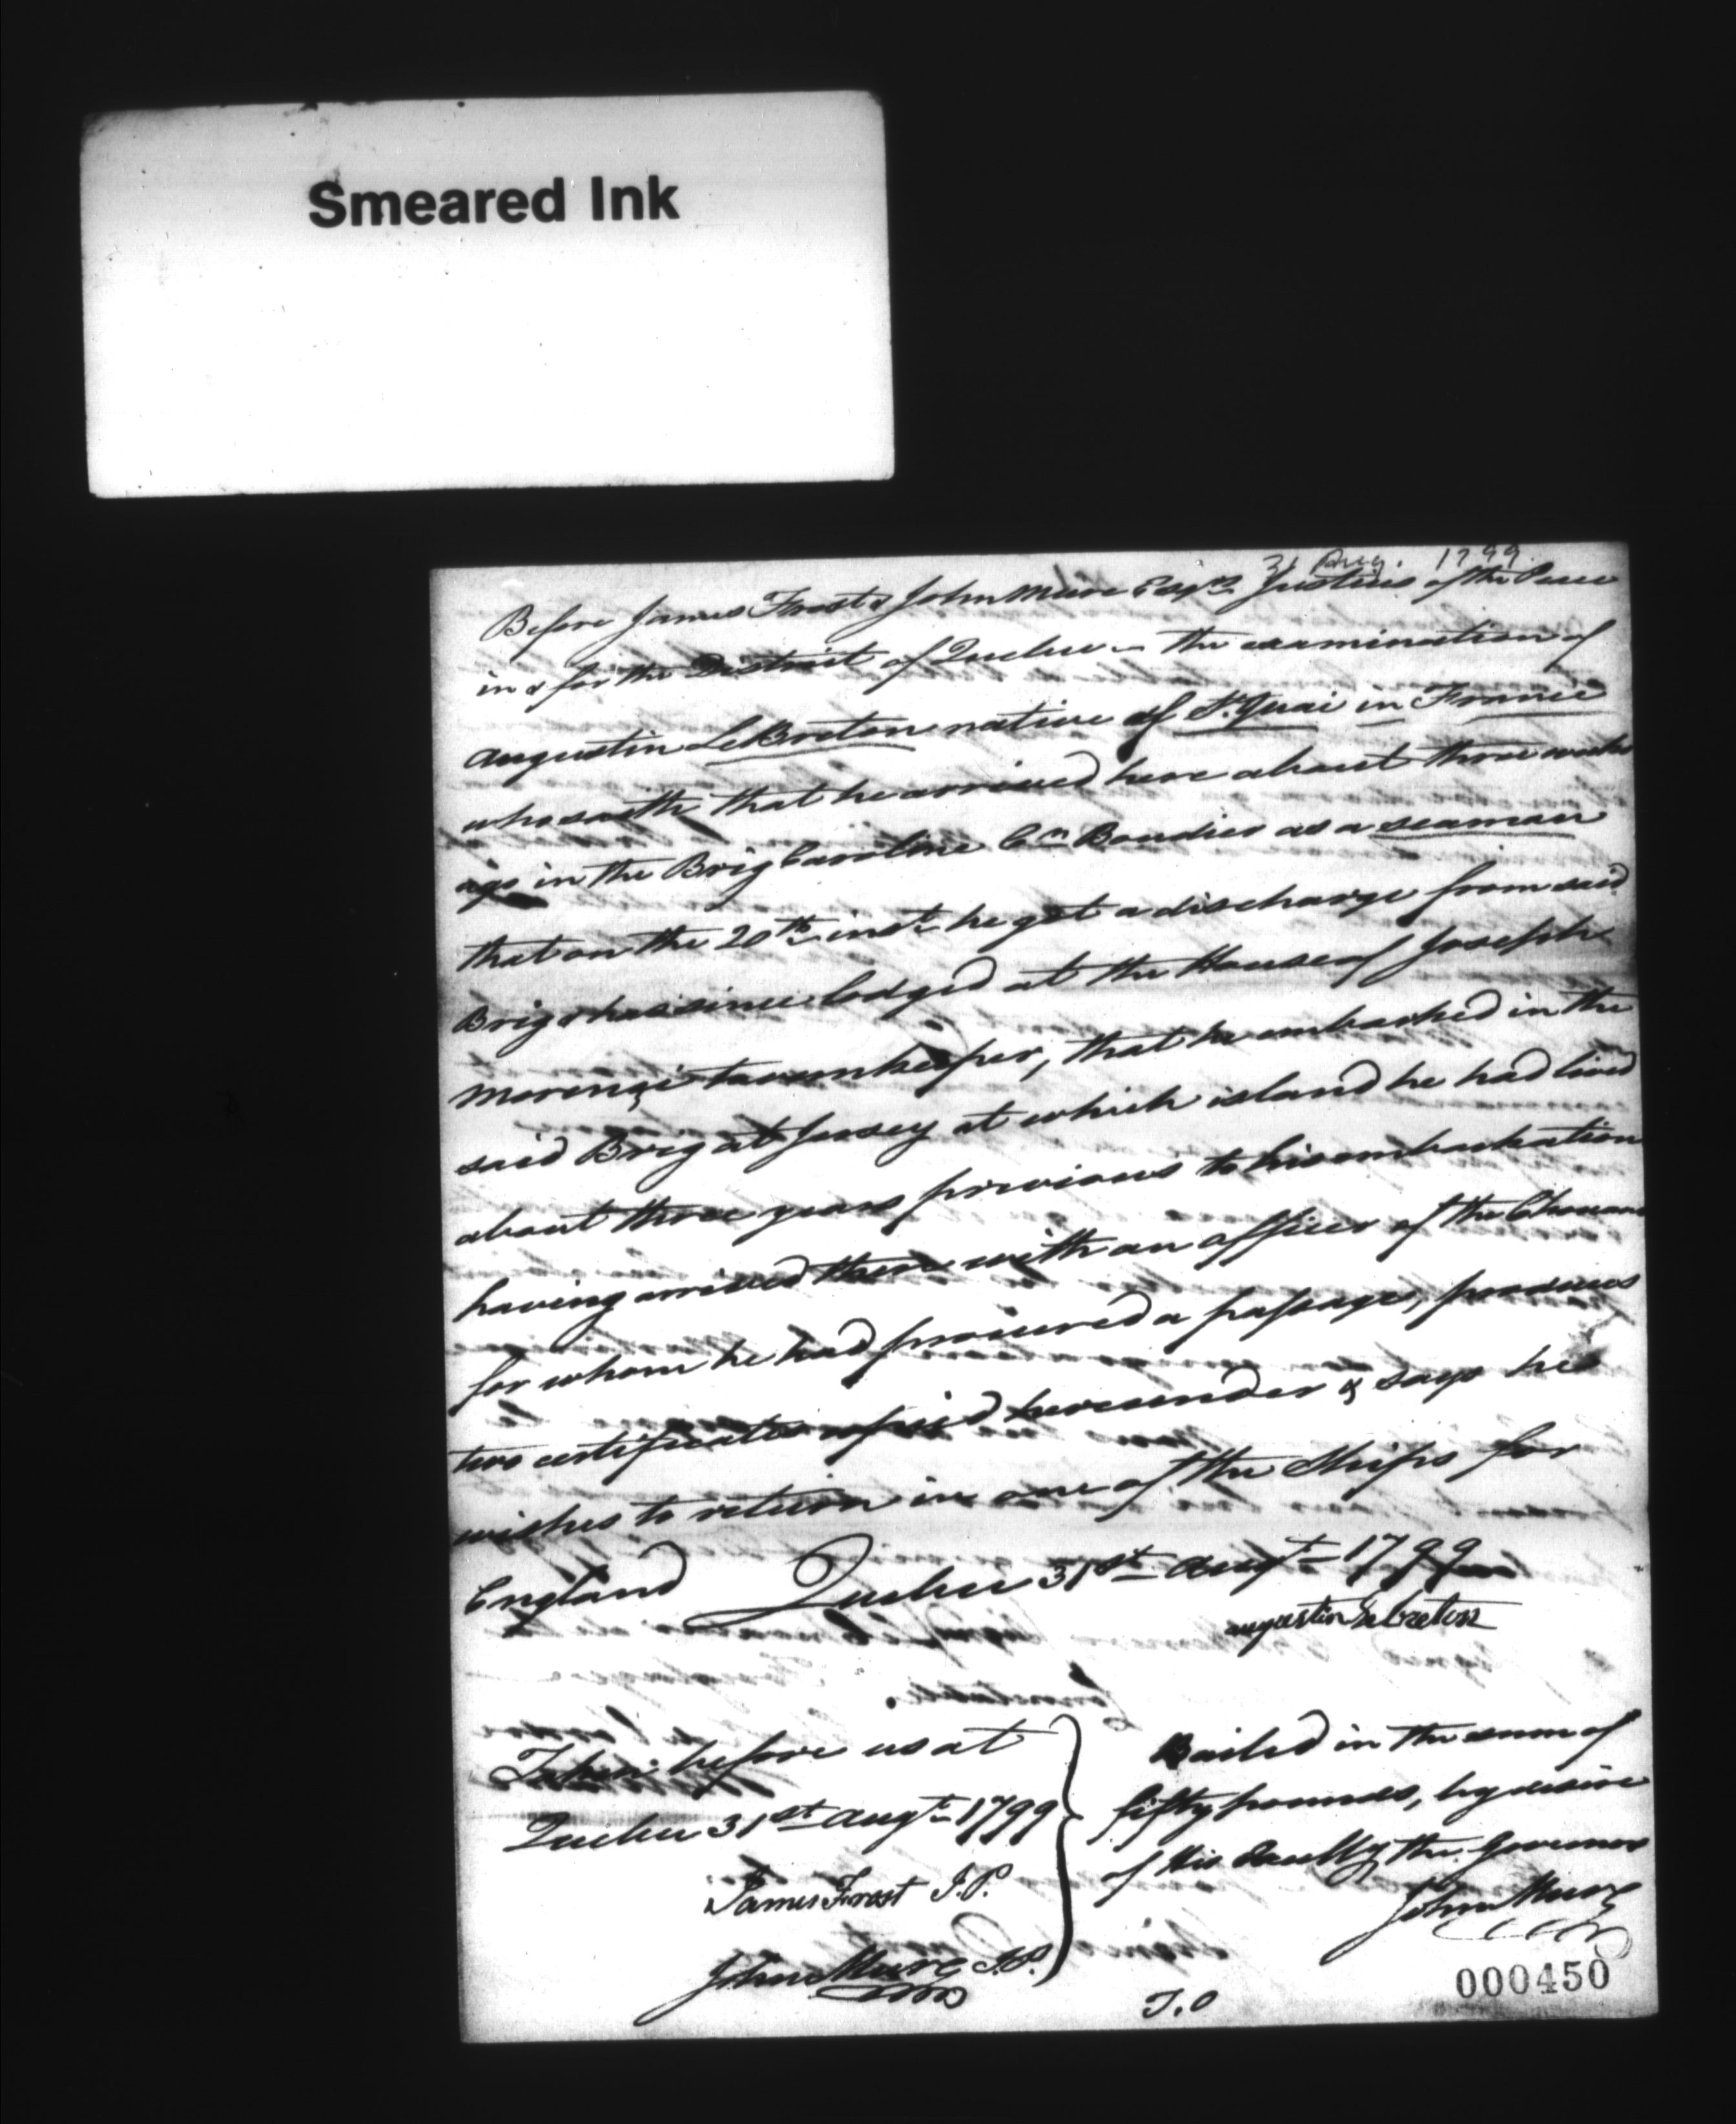 Smeared Ink
31 Aug. 1799
Before James Frost & John Mure Esqrs Justices of the Peace
in & for the District of Quebec – the examination of
Augustin LeBreton native of St. Quai in France
who saith that he arrived here about three weeks
ago in the Brig Caroline Cn Boudier as a seaman
that on the 20th inst he got a discharge from said
Brig & has since lodged at the House of Joseph
Morenci tavernkeeper, that he embarked in the
said Brig at Jersey at which island he had lived
about three years previous to his embarkation
having arrived there with an officer of the Chouans
for whom he had procured a passage, produces
two certificates copied hereunder & says he
wishes to return in one of the Ships for
England Quebec 31st Augt 1799
augustin Lebreton
Taken before us at
Quebec 31st Augt 1799
James Frost J.P.
John Mure J.P.
Bailed in the sum of
fifty pounds, by desire
of His Excelly the Governor
John Mure
T.O
000450